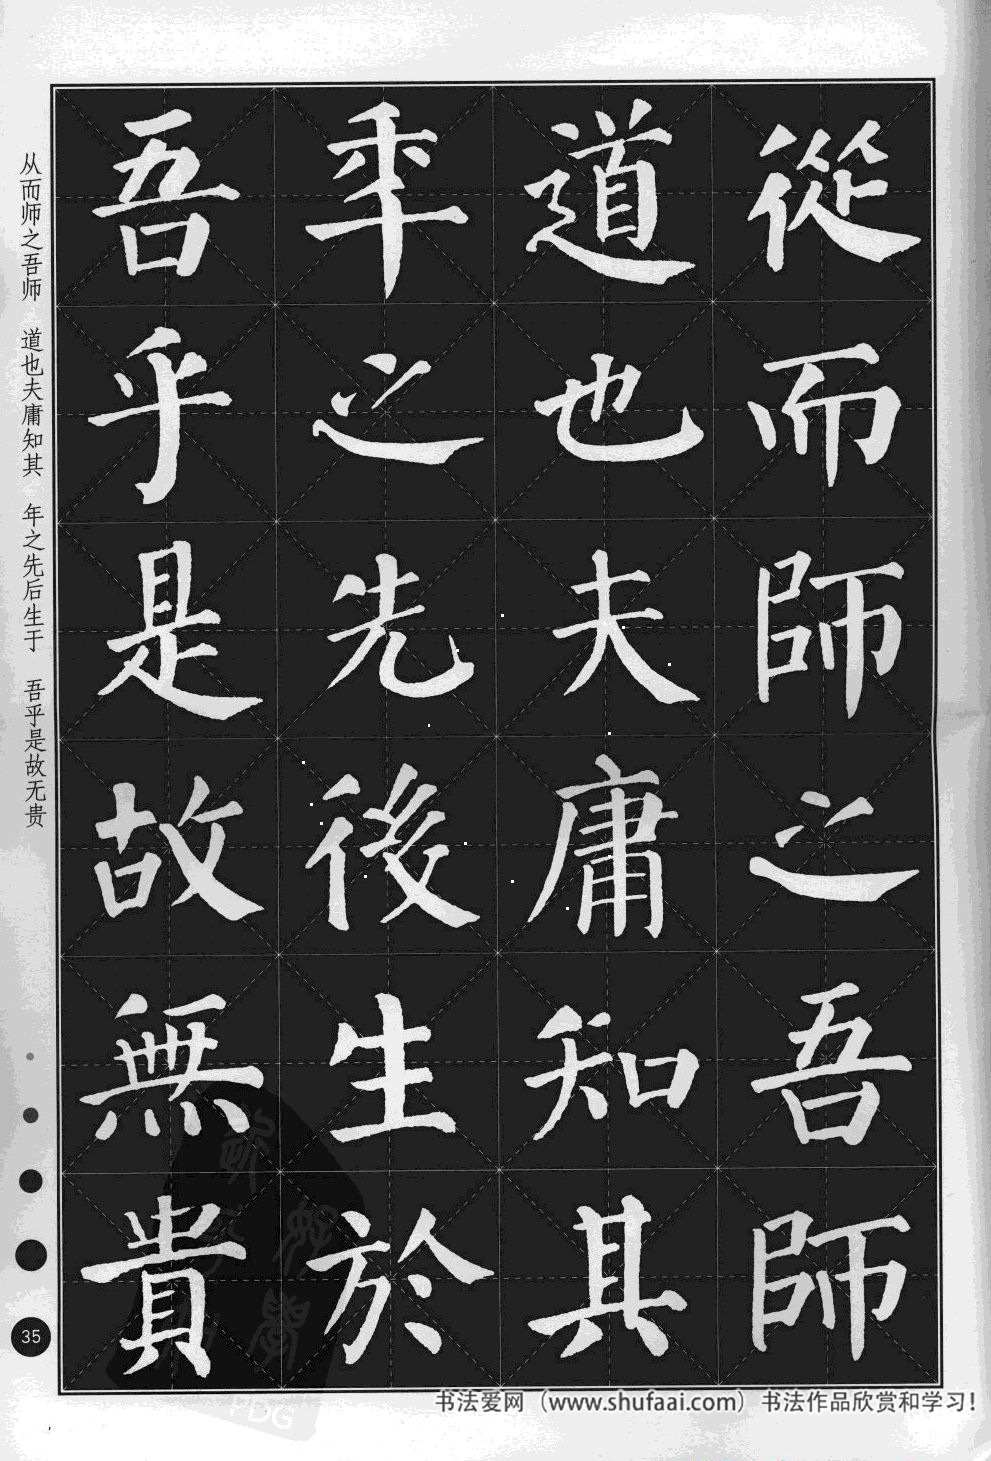 從而師之吾師
道也夫庸知其
年之先後生於
吾乎是故無貴
从而师之吾师 道也夫庸知其 年之先后生于 吾乎是故无贵
35
书法爱网（www.shufaai.com）书法作品欣赏和学习！
PDG